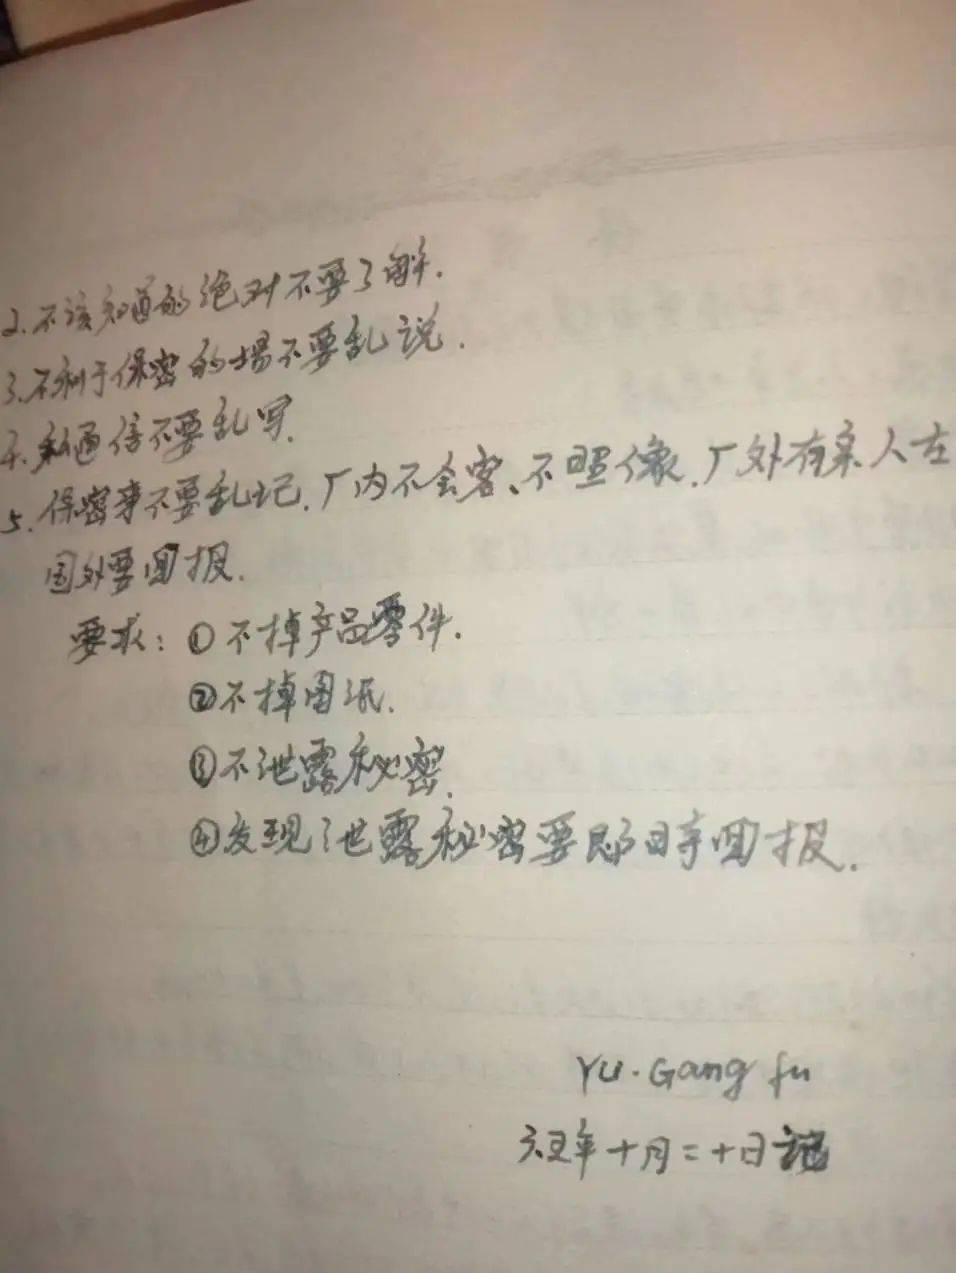 2.不该知道的绝对不要了解.
3.不利于保密的场不要乱说.
4.私通信不要乱写.
5.保密事不要乱记.厂内不会客、不照像.厂外有亲人在
国外要回报.
要求:①不掉产品零件.
②不掉图纸.
③不泄露秘密.
④发现泄露秘密要即时回报.
YU.Gang fu
六五年十月二十日记